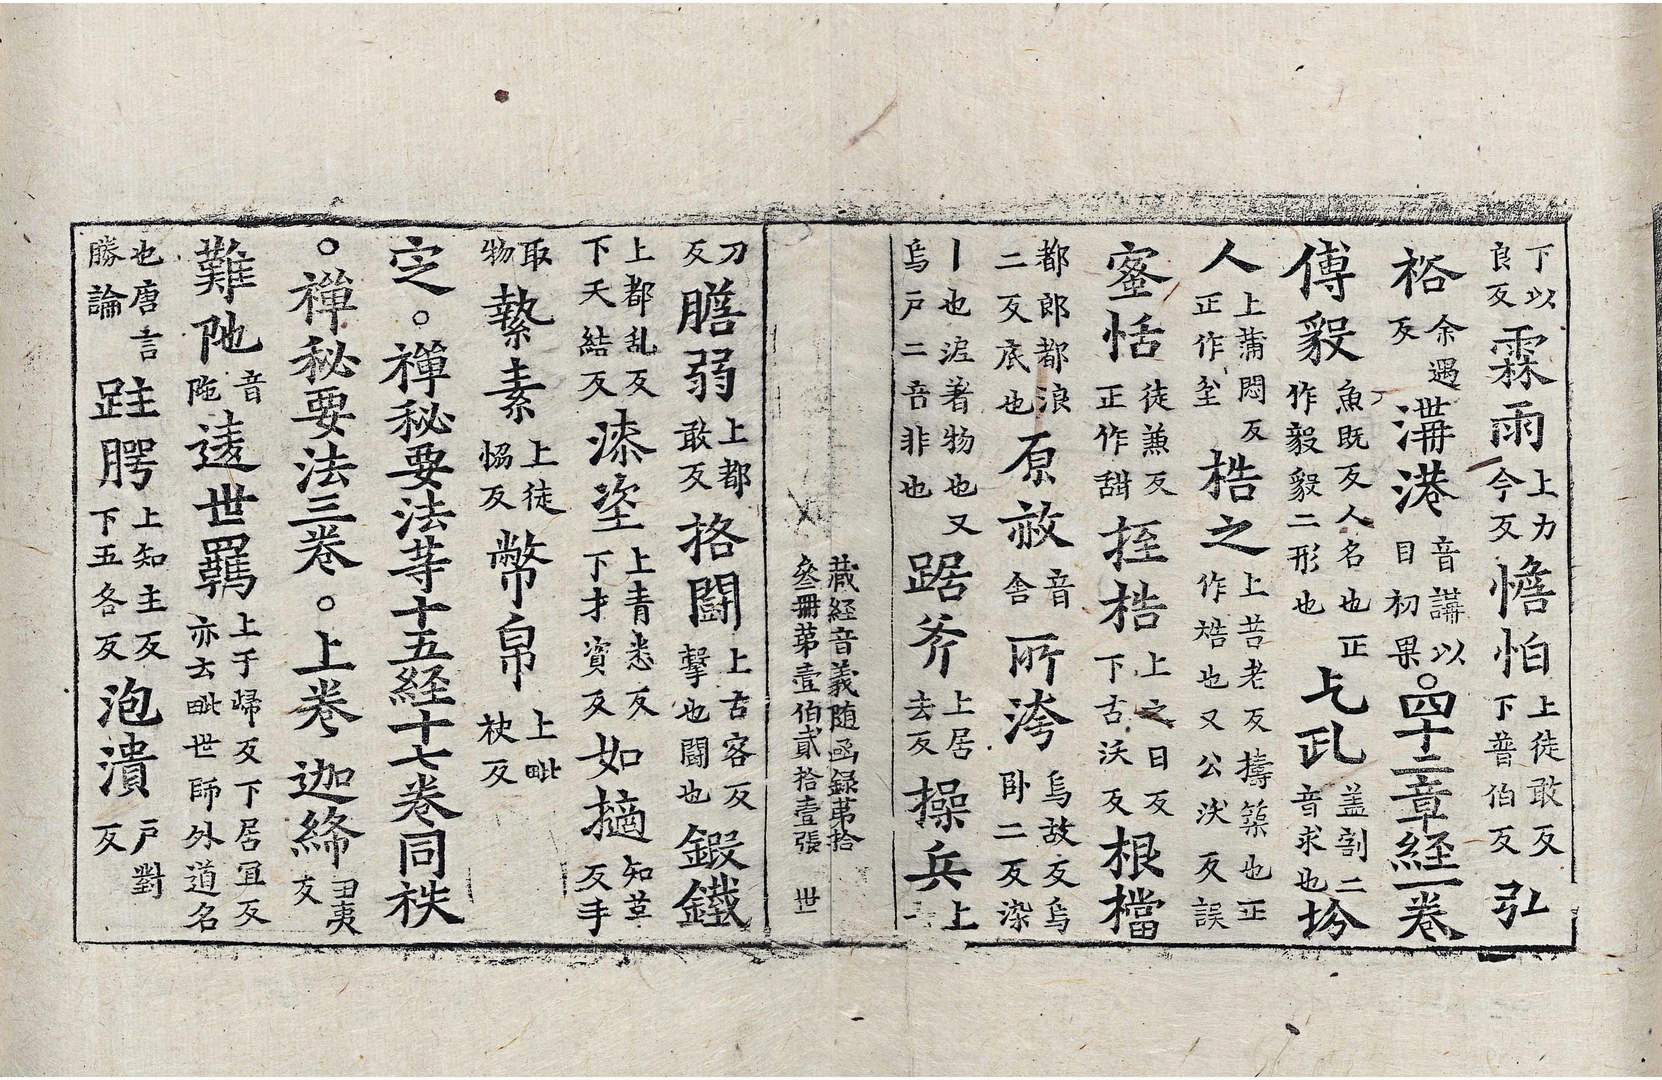 下以良反霖雨上力今反憺怕上徒敢反下普伯反弘
裕余遇反溝港音講以目初果。四十二章経一卷
傅毅魚既反人名也正作毅毅二形也乞匃盖割二音求也坋
人上蒲悶反正作坌梏之上苦老反擣築也正作㮯也又公沃反誤
蜜恬徒兼反正作甜挃梏上之日反下古沃反根檔
都郎都浪二反底也原赦音舍所洿烏故反烏卧二反染
丨也渥著物也又烏戶二音非也踞斧上居去反操兵上
藏経音義随函録苐拾
叁冊苐壹伯貳拾壹張 世
刀反膽弱上都敢反挌鬭上古客反擊也鬭也鍛鐵
上都乱反下天結反漆垐上青悉反下才資反如擿知革反手
取物縶素上徒恊反幣帛上毗袂反
定。禪秘要法等十五経十七卷同袟
。禪秘要法三卷。上卷迦絺丑夷反
難陁音陁違世羈上于歸反下居宜反亦云毗世師外道名
也唐言勝論跓腭上知主反下五各反泡潰戶對反